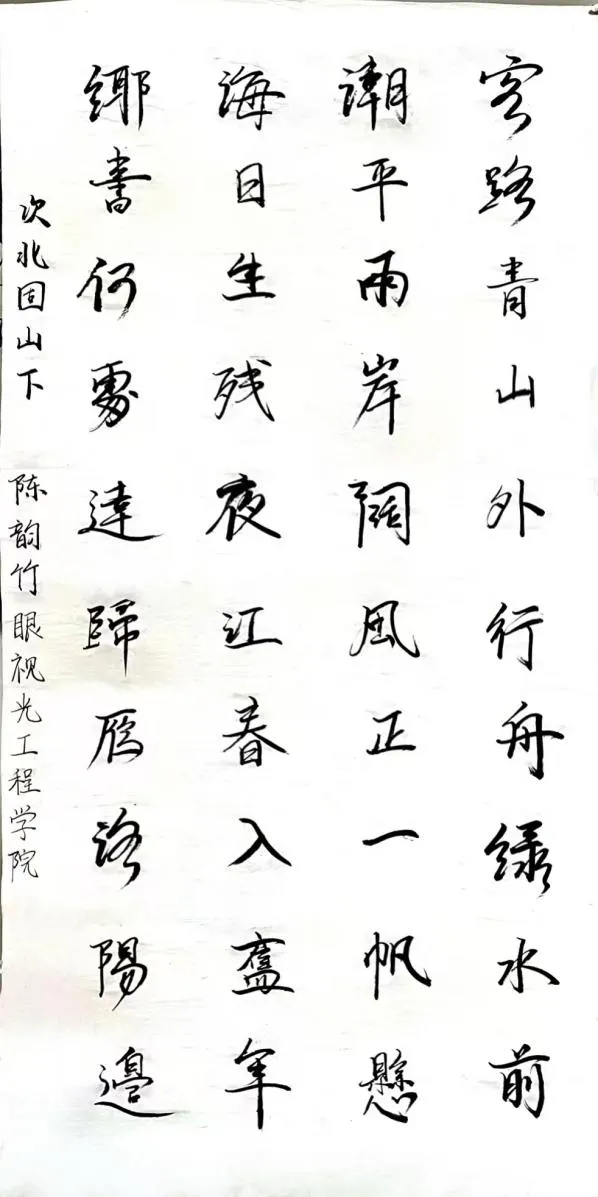 客路青山外行舟绿水前
潮平兩岸闊風正一帆懸
海日生残夜江春入舊年
鄉書何處達歸雁洛陽邊
次北固山下
陈韵竹眼视光工程学院